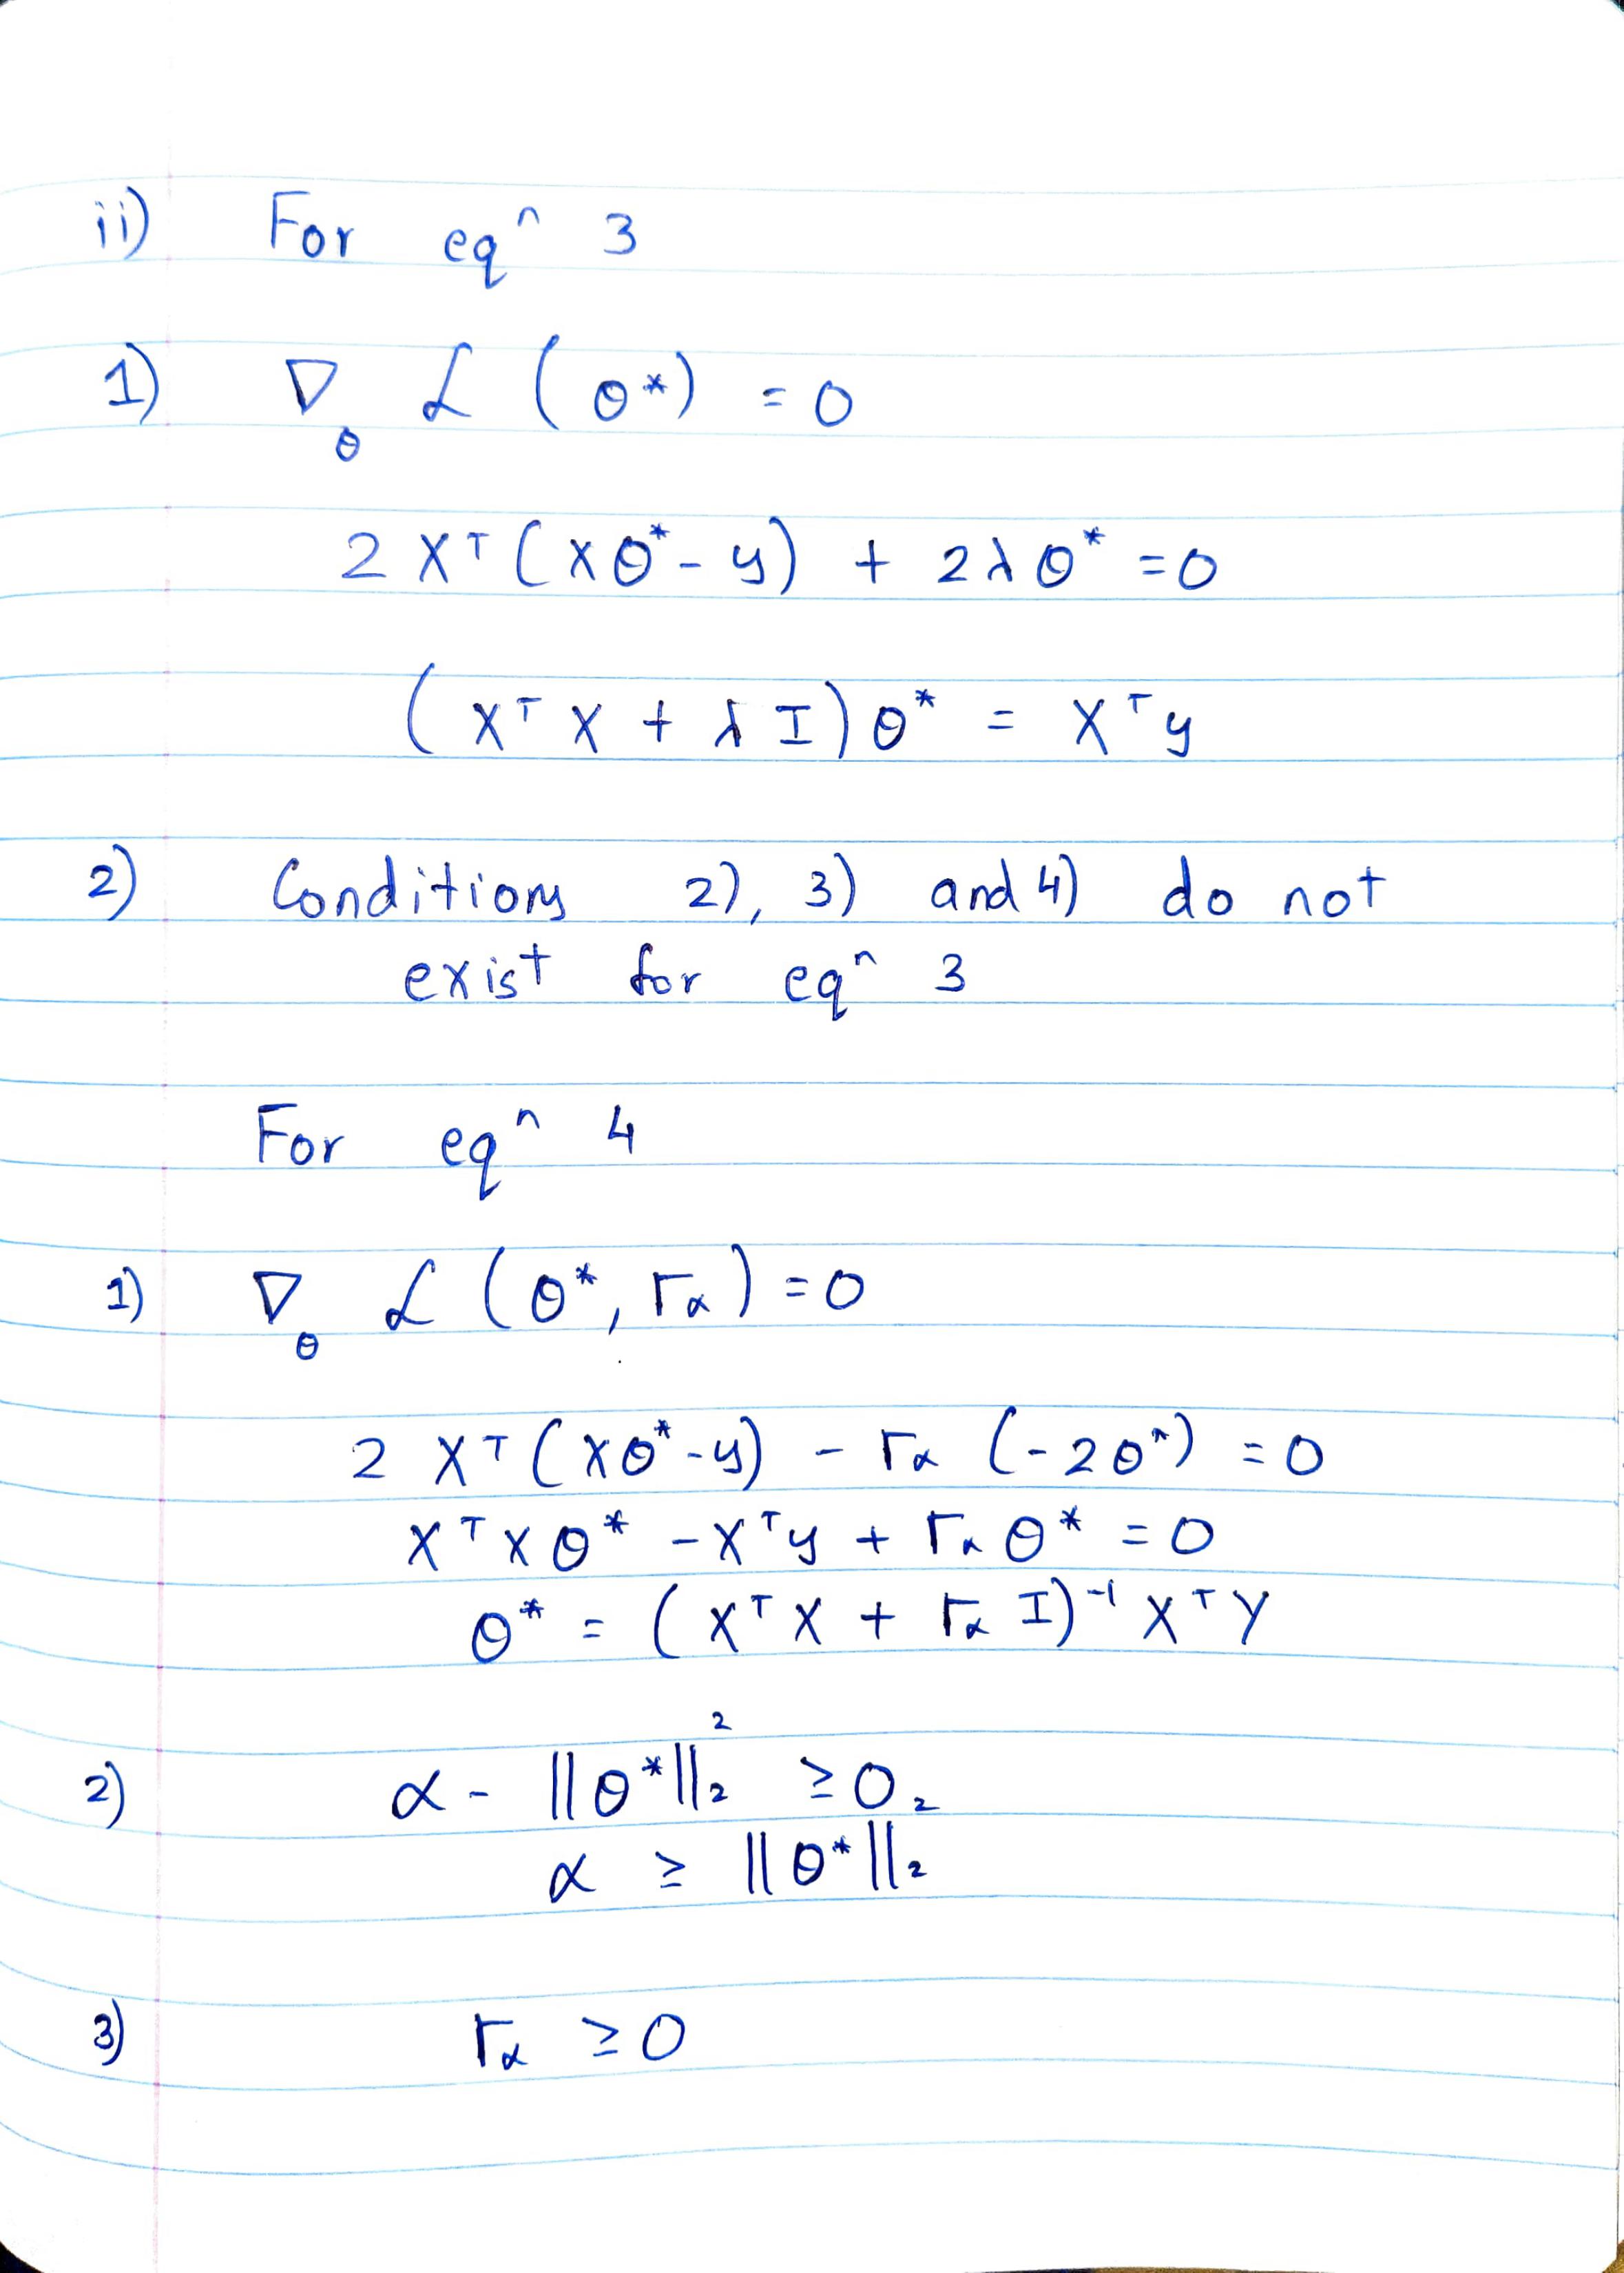 ii) For eqⁿ 3
1) ∇_θ ℒ (θ*) = 0
2 Xᵀ (Xθ* - y) + 2λθ* = 0
(XᵀX + λI) θ* = Xᵀy
2) Conditions 2), 3) and 4) do not
exist for eqⁿ 3
For eqⁿ 4
1) ∇_θ ℒ (θ*, r_α) = 0
2 Xᵀ (Xθ* - y) - r_α (-2θ*) = 0
XᵀXθ* - Xᵀy + r_α θ* = 0
θ* = (XᵀX + r_α I)⁻¹ XᵀY
2) α - ||θ*||₂² ≥ 0
α ≥ ||θ*||₂²
3) r_α ≥ 0